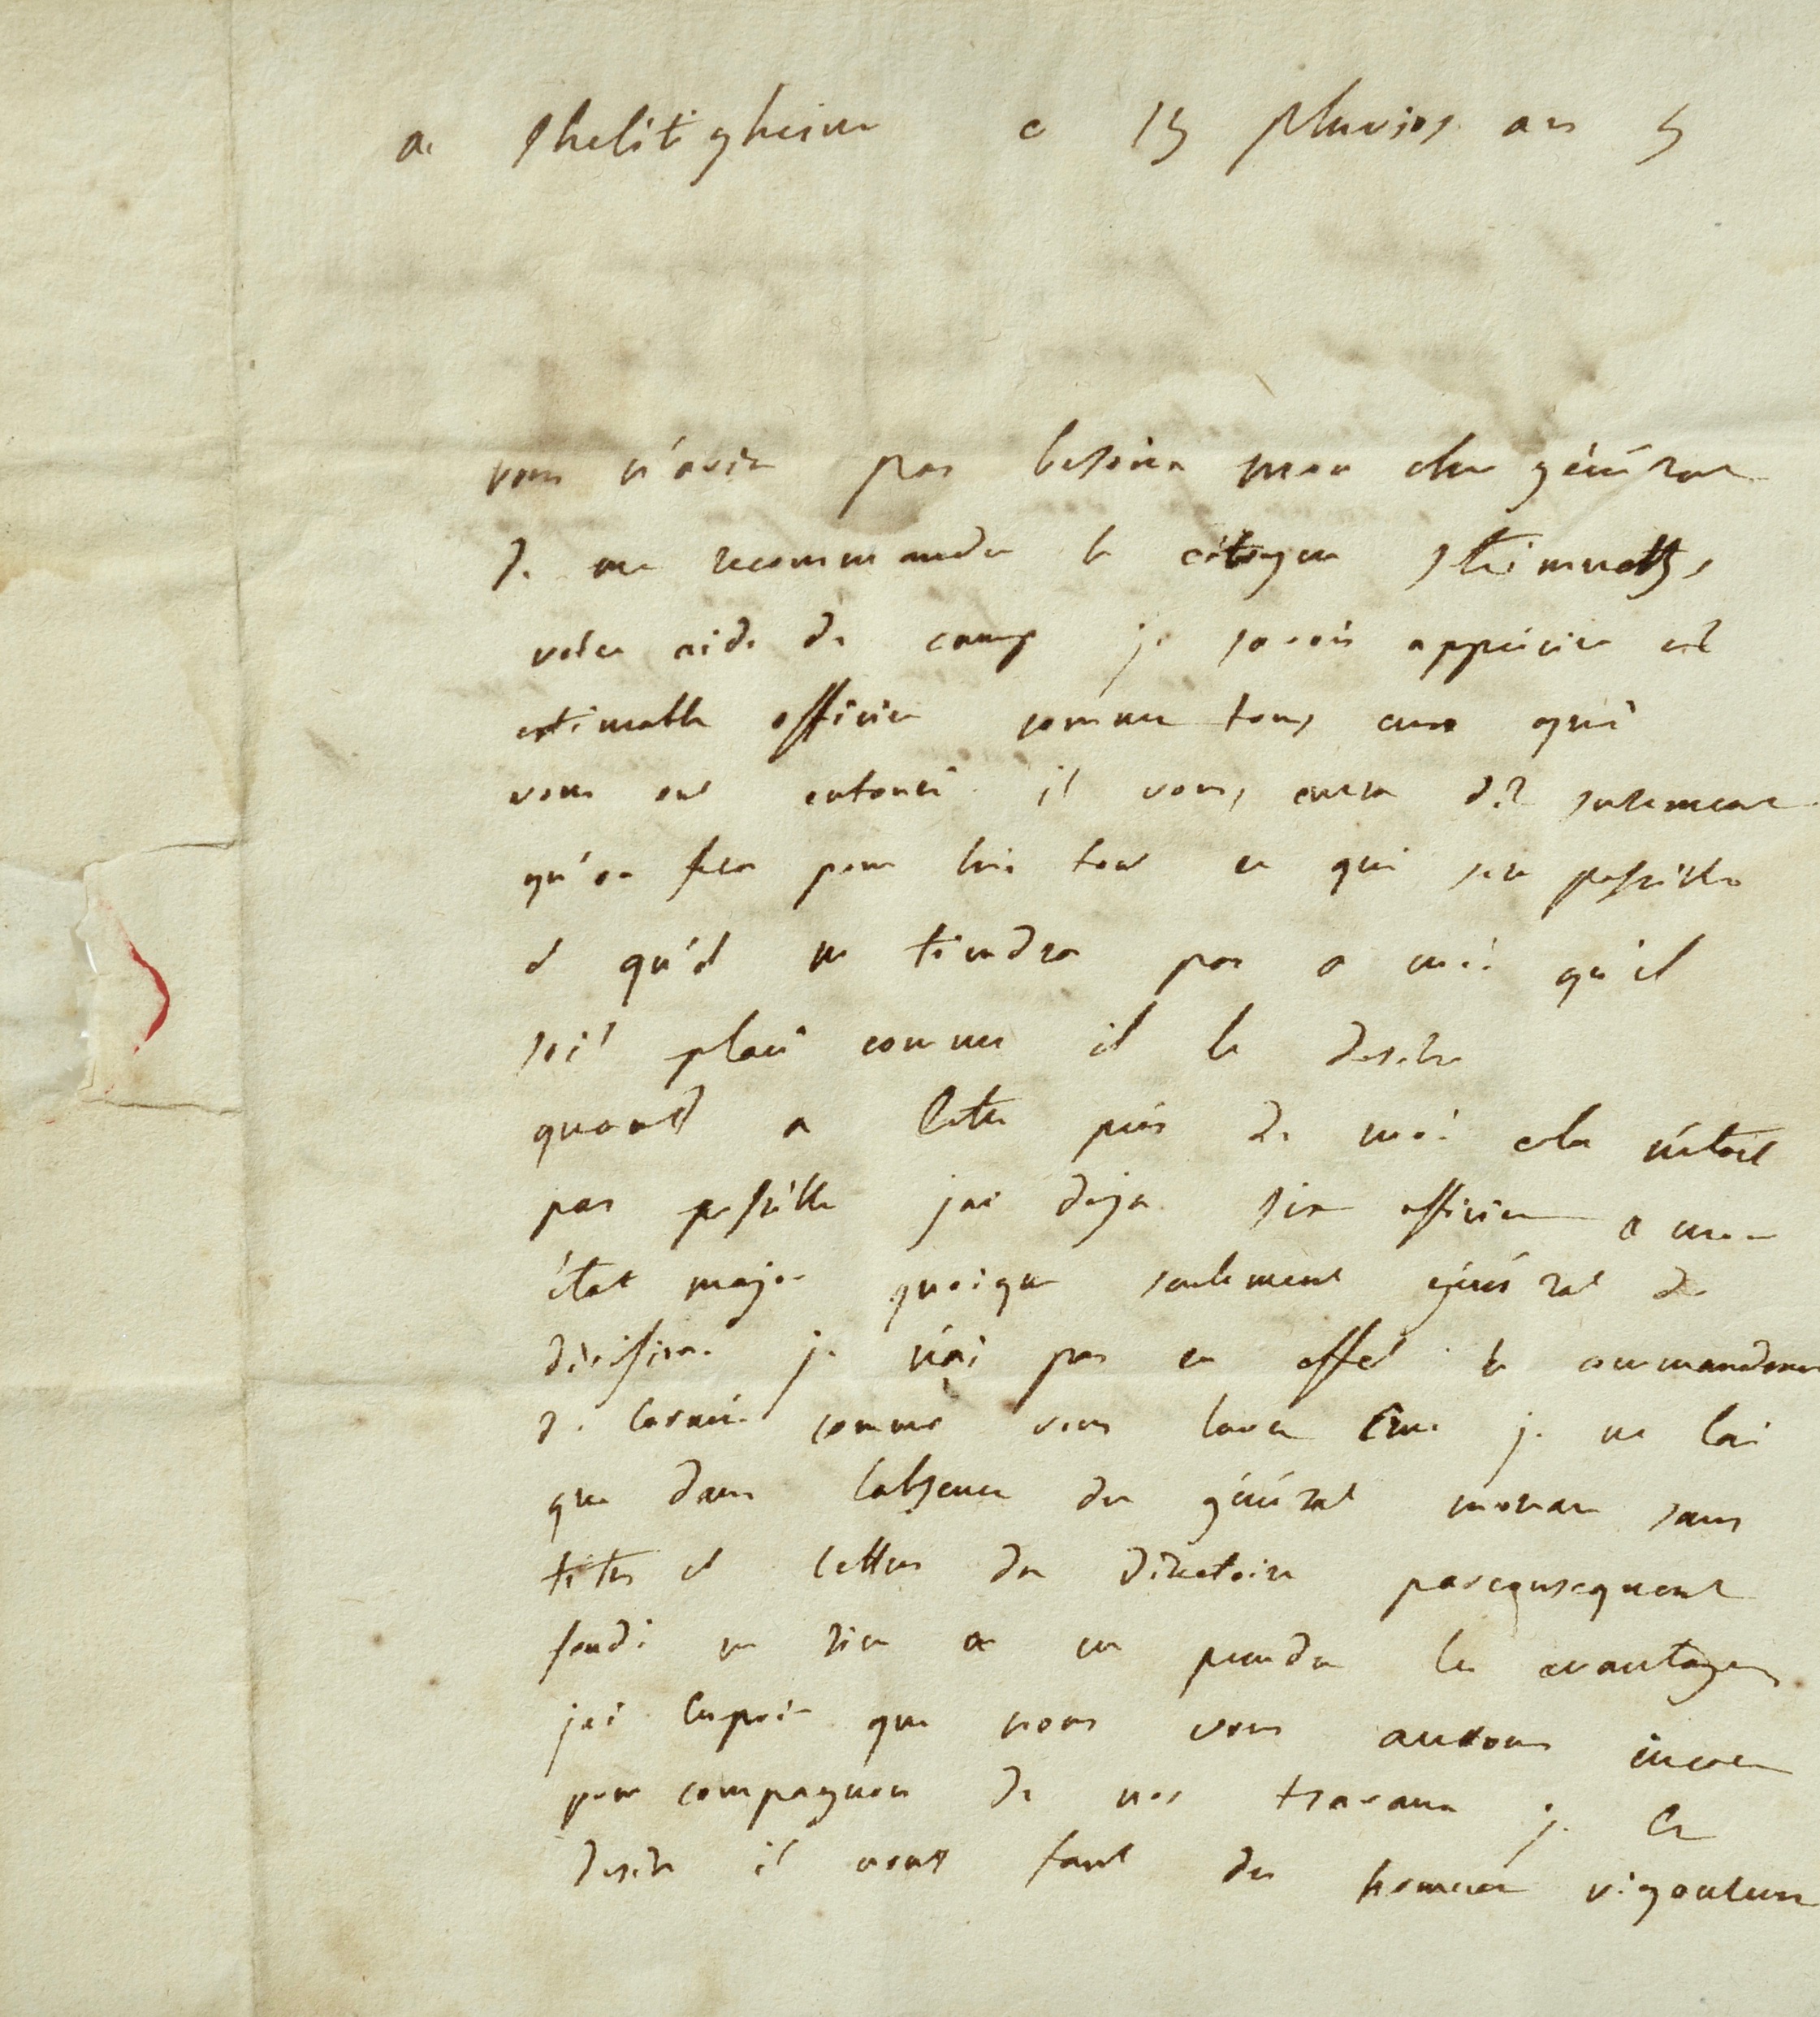 a Shelitigheim c 15 pluvios an 5
vous n'avie pas besoin mon cher général
de me recommander le citoyen
votre aide de camp je savois apprécier cet
estimable officier comme tous ceux qui
vous ont entouré il vous aura dit surement
qu'on fera pour lui tout ce qui sera possible
et qu'il ne tiendra pas a moi qu'il
soit placé comme il le desire
quand a letre près de moi cela nétoit
pas possible jai deja six officier a mon
état major quoique seulement général de
division je n'ai pas en effet le commandement
de larmée comme vous lavez cru je ne lai
que dans labsence du général moreau sans
titres et lettres du directoire parconsequent
fondé en rien a en prendre les avantages
jai lespoir que nous vous aurons encore
pour compagnon de nos travaux je le
desire il nous faut des hommes vigoureux